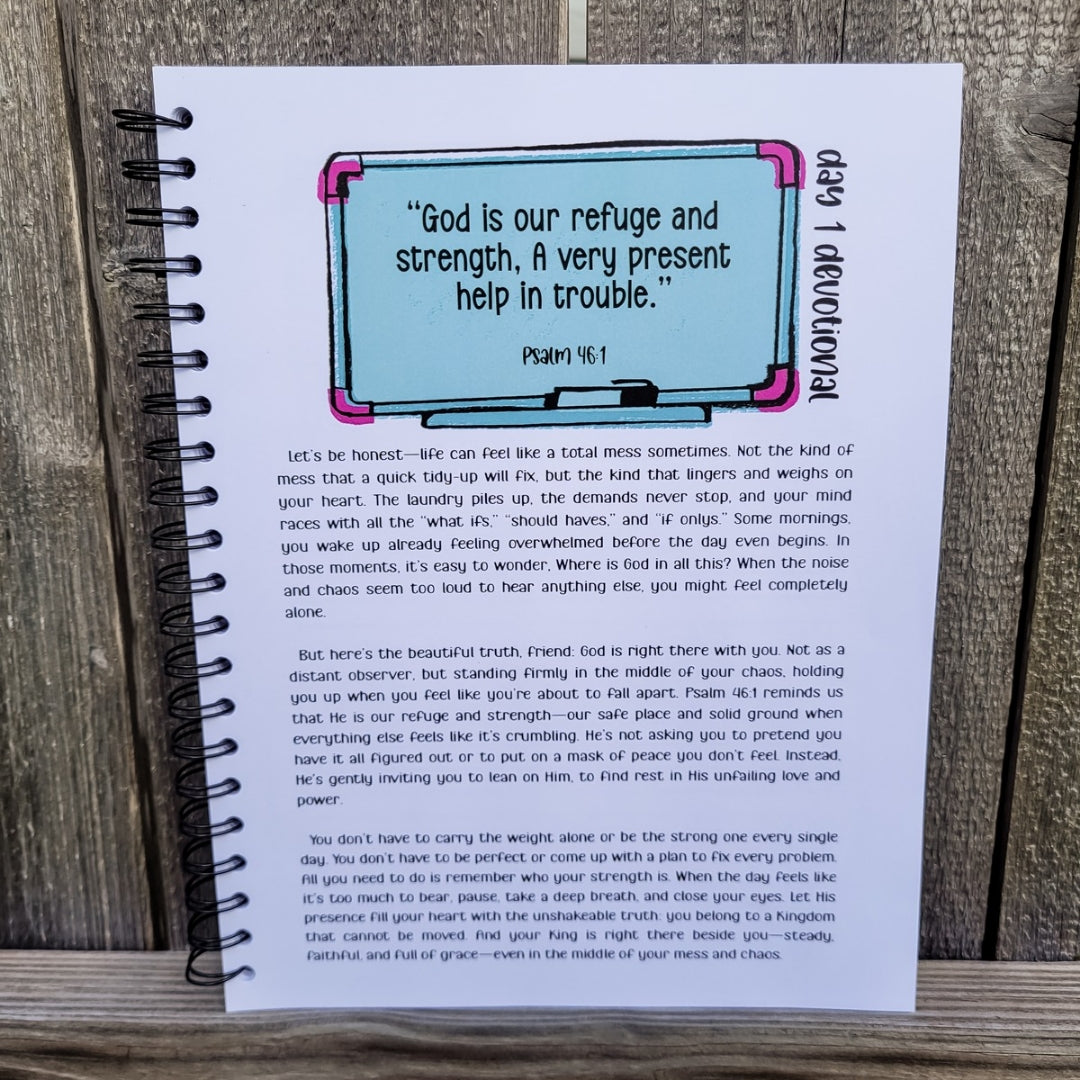 "God is our refuge and
strength, A very present
help in trouble."
Psalm 46:1
day 1 devotional
Let's be honest—life can feel like a total mess sometimes. Not the kind of
mess that a quick tidy-up will fix, but the kind that lingers and weighs on
your heart. The laundry piles up, the demands never stop, and your mind
races with all the "what ifs," "should haves," and "if onlys." Some mornings,
you wake up already feeling overwhelmed before the day even begins. In
those moments, it's easy to wonder, Where is God in all this? When the noise
and chaos seem too loud to hear anything else, you might feel completely
alone.
But here's the beautiful truth, friend: God is right there with you. Not as a
distant observer, but standing firmly in the middle of your chaos, holding
you up when you feel like you're about to fall apart. Psalm 46:1 reminds us
that He is our refuge and strength—our safe place and solid ground when
everything else feels like it's crumbling. He's not asking you to pretend you
have it all figured out or to put on a mask of peace you don't feel. Instead,
He's gently inviting you to lean on Him, to find rest in His unfailing love and
power.
You don't have to carry the weight alone or be the strong one every single
day. You don't have to be perfect or come up with a plan to fix every problem.
All you need to do is remember who your strength is. When the day feels like
it's too much to bear, pause, take a deep breath, and close your eyes. Let His
presence fill your heart with the unshakeable truth: you belong to a Kingdom
that cannot be moved. And your King is right there beside you—steady,
faithful, and full of grace—even in the middle of your mess and chaos.